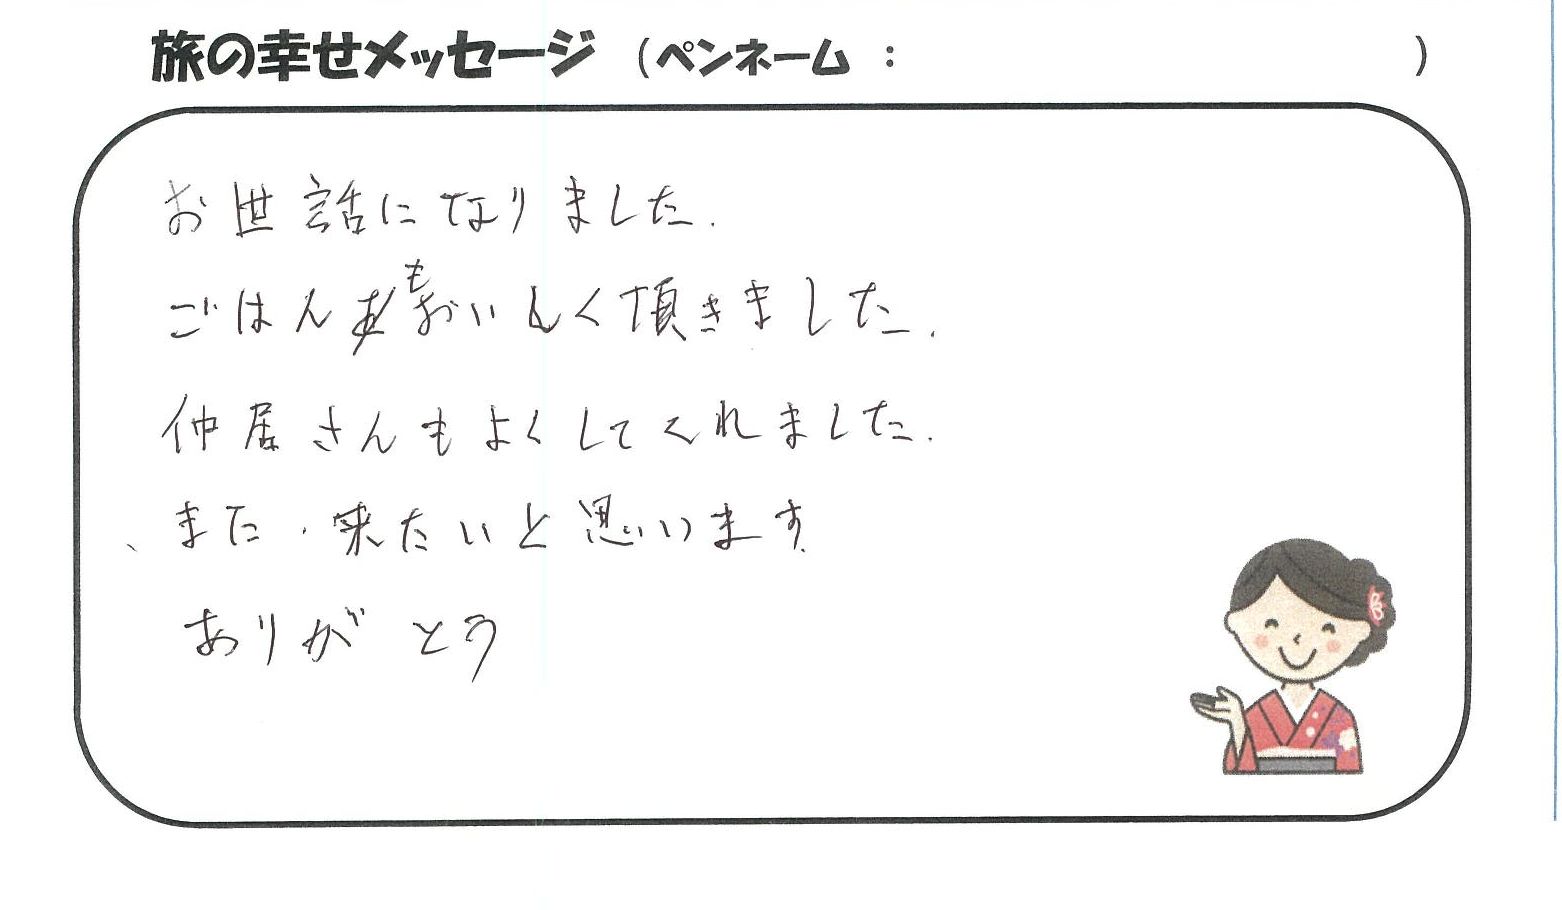 旅の幸せメッセージ (ペンネーム : )
お世話になりました.
ごはんもおいしく頂きました.
仲居さんもよくしてくれました.
また、来たいと思います
ありがとう